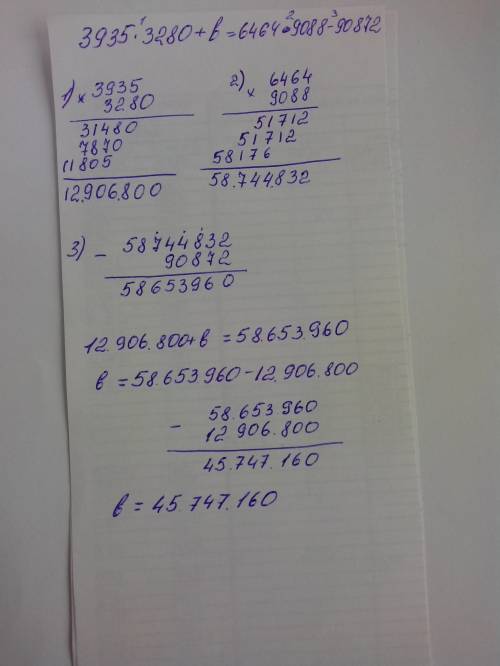 3935 ·¹ 3280 + в = 6464 ·² 9088 -³ 90872
1) × 3935
3280
31480
7870
11805
12.906.800
2) × 6464
9088
51712
51712
58176
58.744.832
3) - 58744832
90872
58653960
12.906.800 + в = 58.653.960
в = 58.653.960 - 12.906.800
- 58.653.960
12.906.800
45.747.160
в = 45.747.160